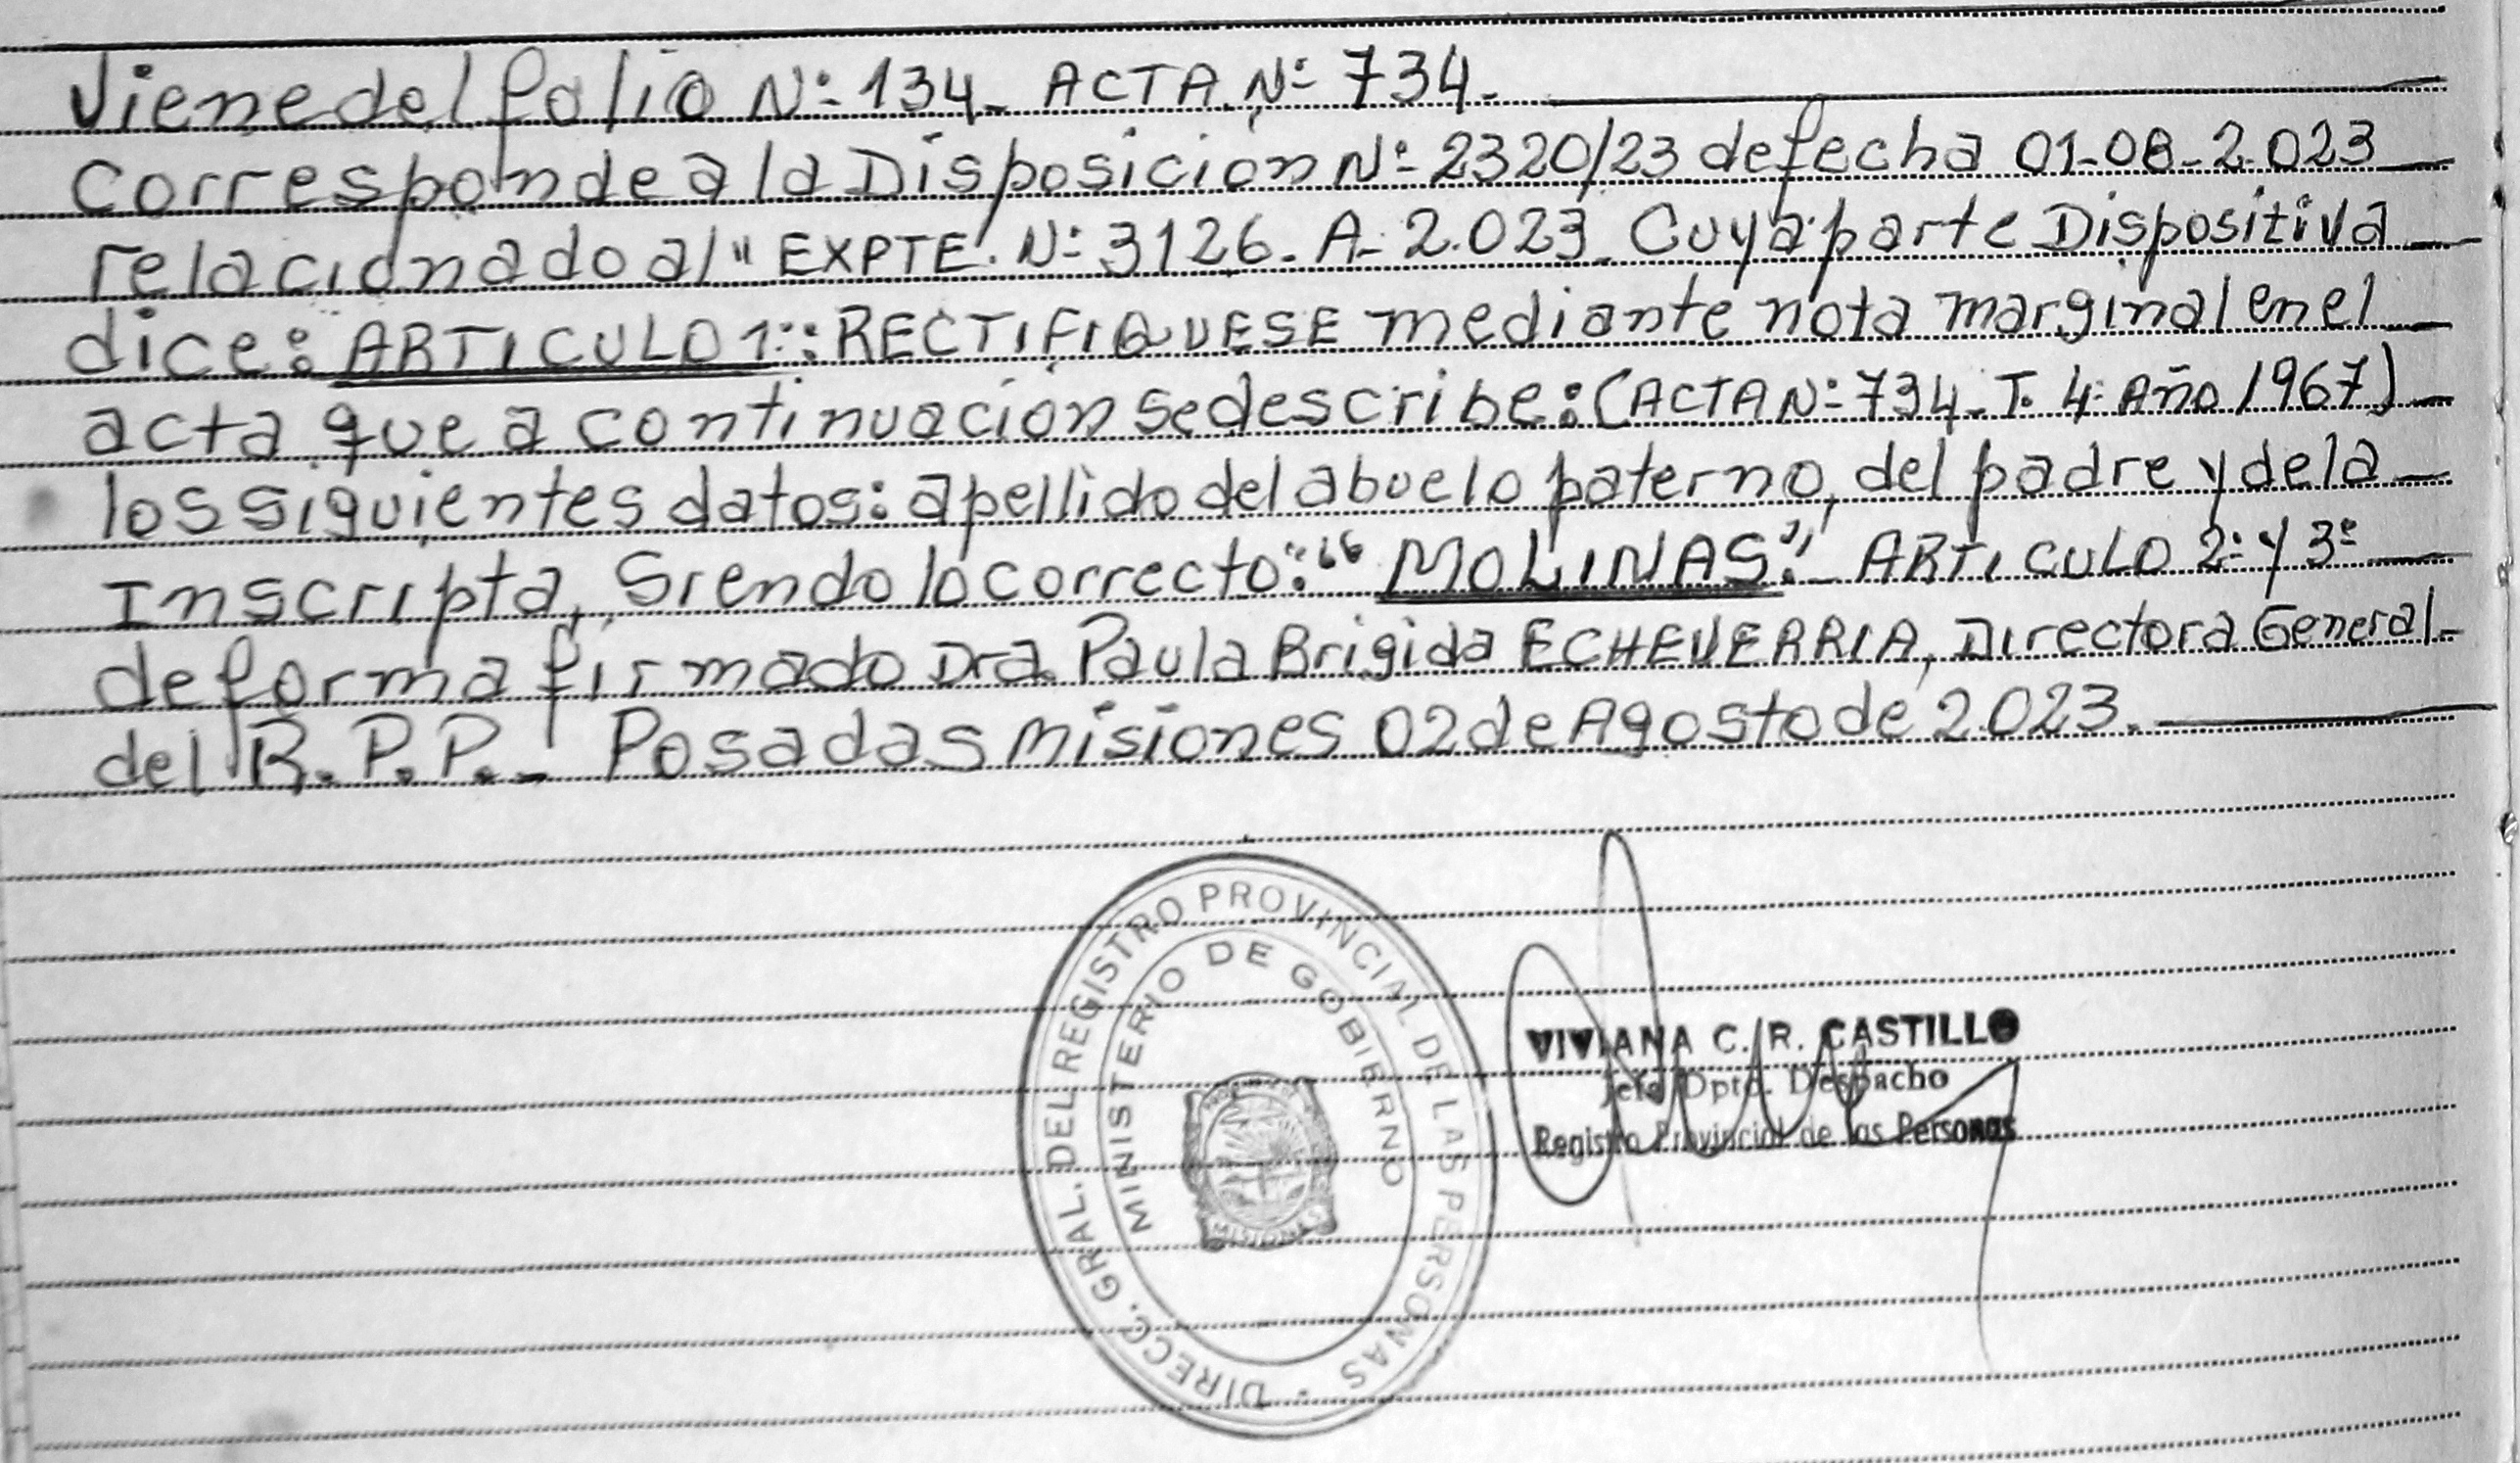 Viene del folio Nº 134_ ACTA Nº 734_
Corresponde a la Disposición Nº 2320/23 de fecha 01-08-2.023
relacionado al "EXPTE. Nº 3126-A-2.023. Cuya parte Dispositiva
dice: ARTICULO 1º: RECTIFIQUESE mediante nota marginal en el
acta que a continuación se describe: (ACTA Nº 734_ T. 4º Año 1967)
los siguientes datos: apellido del abuelo paterno, del padre y de la
Inscripta, Siendo lo correcto: "MOLINAS". ARTICULO 2º y 3º
de forma firmado Dra. Paula Brigida ECHEVERRIA, Directora General
del R.P.P._ Posadas Misiones 02 de Agosto de 2.023.
DIRECC. GRAL. DEL REGISTRO PROVINCIAL DE LAS PERSONAS
MINISTERIO DE GOBIERNO
MISIONES
VIVIANA C. R. CASTILLO
Jefa Dpto. Despacho
Registro Provincial de las Personas